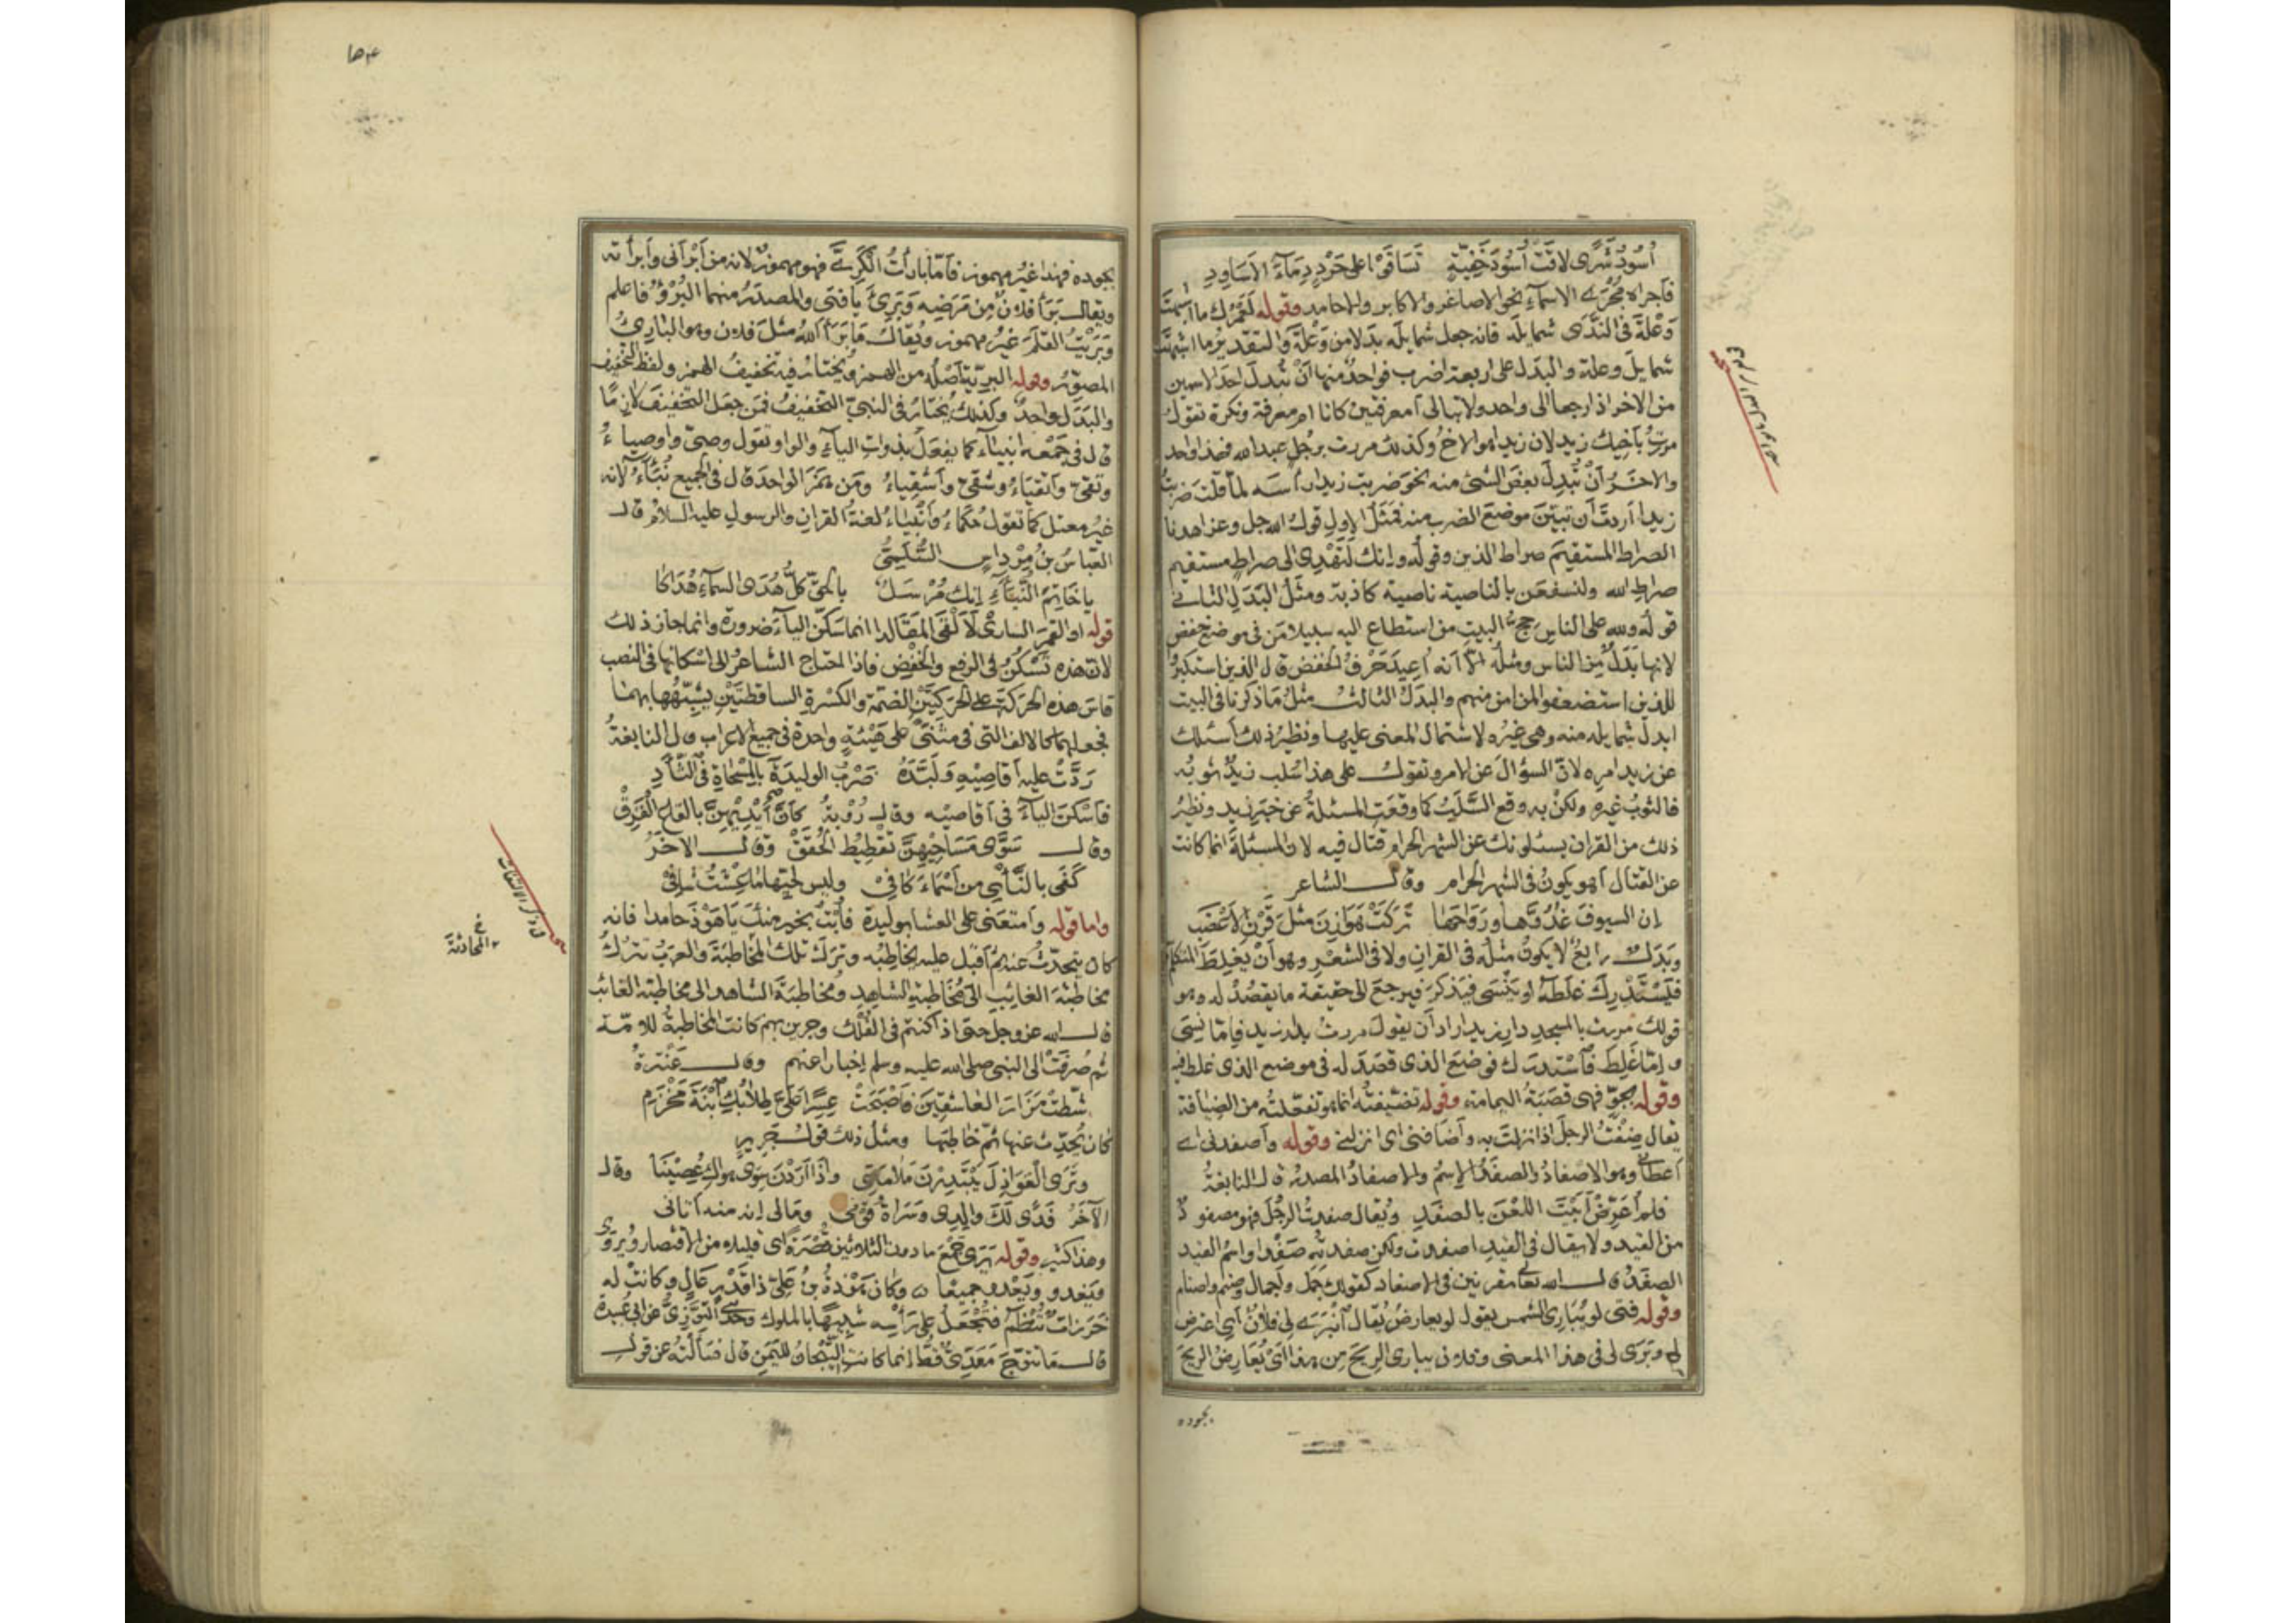 أُسُودُ شَرًى لاقَتْ أُسُودَ خَفِيَّةٍ تَسَاقَوْا على حَرْدٍ دِمَآءَ الاَسَاوِدِ
فاجراه مُجْرَى الاسمآءِ نحو الاصاغر والاكابر والاحامد وقوله لَعَمْرُك ما اشبهَتْ
وَعْلَةَ فى النَّدَى شمايلَه فانه جعل شمايلَه بدلا من وَعْلَةَ والتقدير ما اشبهَتْ
شمايلَ وعلة والبدل على اربعة اضرب فواحدٌ منها اَنْ تُبدلَ احدَ الاسمين
من الاخر اذا رجعا الى واحد ولا تبالى أمعرفتين كانا ام معرفة ونكرة تقول
مررتُ بأخيك زيدٍ لان زيدا هو الاخُ وكذلك مررت برجلٍ عبدالله فهذا واحد
والاخر أنْ تُبدلَ بعضَ الشئ منه نحوَ ضربت زيدا رأسَه لمّا قلت ضربتُ
زيدا أردتَ أن تبيّن موضعَ الضرب منه فمَثَلُ الاولِ قولُ الله جل وعز اهدنا
الصراط المستقيم صراط الذين وقولُه وانك لتَهْدى الى صراطٍ مستقيم
صراطِ الله ولنسفعَن بالناصية ناصيةٍ كاذبة ومثلُ البدَلِ الثانى
قولُه ولله على الناس حِجُّ البيت من استطاع اليه سبيلا مَن فى موضع خفضٍ
لانها بَدَلٌ مِن الناس ومثلُه الّا أنه اُعيدَ حَرْفُ الخفض قال الذين استكبرُوا
للذين استضعفوا لمن امن منهم والبدلُ الثالث مثلُ مَا ذكرنا فى البيت
ابدلَ شمايله منه وهى غيرُه لاشتمال المعنى عليها ونظيرُ ذلك أسئلك
عن زيد امره لانّ السؤالَ عن الامر وتقول على هذا سُلب زيدٌ ثوبُه
فالثوبُ غيره ولكنْ به وقع السَّلَبُ كما وقعَتِ المسئلةُ عن خبَر زيد ونظيرُ
ذلك من القران يسئلونك عن الشهر الحرام قتال فيه لان المسئلةَ انما كانت
عن القتال أهو يكونُ فى الشهر الحرام وقال الشاعر
إن السيوفَ غُدُوَّها ورَوَاحَها تَركَتْ هَوَازِنَ مثلَ قَرْنِ الاَعْضَبِ
وبَدَل رابعٌ لا يكونُ مثلُه فى القران ولا فى الشعْر وهو أنْ يَغلِطَ المتكلمُ
فيَسْتَدْرِكَ غلَطَه او يَنْسَى فيَذكرَ فيرجعَ الى حقيقة ما يقصُدُ له وهو
قولك مررت بالمسجد دارِ زيد اراد أن يقول مررتُ بدار زيد فإمّا نَسِىَ
وإمّا غَلِطَ فاسْتدرك فوضعَ الذى قصَدَ له فى موضع الذى غلط فيه
وقوله بجوٍّ فهى قصَبَةُ اليمامة وقوله تضيّفتُه انما هو تفعّلتُه من الضيافة
يقال ضِفْتُ الرجلَ اذا نزلتَ به وأضَافنى اى انزلنى وقوله وأصفدنى اى
اَعطانى وهو الاصفادُ والصفَدُ الاِسمُ والاصفادُ المصدر قال النابغةُ
فلم أعَرِّضْ أبَيْتَ اللعْنَ بالصفَدِ ويُقال صفدتُ الرجُلَ فهو مصفودٌ
من القيد ولا يقال فى القيد اصفدت ولكن صفدتُه صَفْدًا واسمُ القيد
الصفَدُ قال الله تعالى مقرنين فى الاصفاد كقولك جَمَل واَجمال وصنم واصنام
وقوله فتى لو يُبَارى الشمس يقول لو يعارضُ يُقال انْبَرَى لى فلانٌ اَى اعترض
لى وبَرَى لى فى هذا المعنى وفلان يبارى الريحَ من هذا اَىْ يُعَارِضُ الريحَ
بجوده
بجوده فهذا غيرُ مهموز فأمّا بارأتُ الكَرِىَّ فهو مهموزٌ لانه من اَبْرَأنى وأبرأته
ويقال بَرَأ فلانٌ مِن مَرَضِه وَبَرِئَ يا فتى والمصدَرُ منهما البُرْؤُ فاعلم
وبَرَيْتُ القلَمَ غيرُ مهموز ويُقالُ مَا بَرَأ اللّهُ مثلَ فلان وهو البَارئُ
المصوّرُ وقوله البريّة أصْلُه من الهمز ويُختارُ فيه تخفيفُ الهمز ولفظ التخفيف
والبَدَل واحدٌ وكذلك يُختارُ فى النبىِّ التخفيفُ فمَن جعَل التخفيفَ لازمًا
قال فى جَمْعه انبيآء كما يفعَلُ بذواتِ اليآءِ والواو تقول وصىّ واوصياءُ
وتقىّ وأتقياءُ وشقىّ وأشقياءُ ومَن همَز الواحدَ قال فى الجميع نُبَئَآءُ لانه
غيرُ معتل كما تقول حُكماءُ وأنبياءُ لغةُ القران والرسولِ عليه السلامُ قال
العبّاسُ بنُ مِرْداسٍ السُّلَمىُّ
يا خَاتِمَ النُّبَئَآءِ إنك مُرْسَلٌ بالحقّ كلُّ هُدَى السمآءِ هُدَاكا
قوله او القمَرَ السارىْ لَاَلْقَى المقَالدا انما سَكّن اليآءَ ضرورة وانما جاز ذلك
لانّ هذه تَسْكُنُ فى الرفع والخَفْضِ فاذا احتاج الشاعرُ الى اسْكانها فى النصب
قاسَ هذه الحرَكةَ على الحركتَيْنِ الضمّة والكسْرة الساقطتَيْنِ يشبّهُها بهما
فجعلهما كالالف التى فى مثنًى على هَيْئةٍ واحدة فى جميع الاعراب قال النابغةُ
رَدَّتْ عليه أقاصِيْهِ ولَبَّدَهُ ضَرْبُ الوليدَةِ بالمِسْحاةِ فى الثَّأَدِ
فأسْكنَ اليآءَ فى أقاصيْه وقال رُؤبَةُ كأنَّ أيْدِيْهِنَّ بالقاعِ الْقَرِقْ
وقال سَوَّى مَسَاحِيْهِنَّ تَقْطِيطُ الحُقَقْ وقال الاخَرُ
كَفَى بالنَّأْىِ من أسْمَاءَ كافِىْ وليس لحُبّها ما عِشْتُ شافِىْ
واما قوله وأمتعَنى على العشا بوليدة فأُبْتُ بخير منك يا هَوْذَ حامدا فانه
كان يتحدّثُ عنه ثم أقبلَ عليه يُخاطِبُه وترَك تلك المُخاطبَةَ والعرَبُ تترُكُ
مخاطَبَةَ الغائبِ الى مُخاطَبَةِ الشاهِد ومُخاطبَةَ الشاهد الى مخاطبَة الغائبِ
قال الله عز وجل حتى اذا كنتم فى الفُلْك وجرين بهم كانت المخاطبةُ للامّة
ثم صُرِفَتْ الى النبى صلى الله عليه وسلم إخبارا عنهم وقال عَنْتَرةُ
شَطّتْ مَزَارَ العَاشقِينَ فأصْبَحَتْ عَسِرًا علىَّ طِلابُكِ ابْنَةَ مَخْرَمِ
كان يُحَدِّث عنها ثم خاطبَها ومثلُ ذلك قولُ جَرِيرٍ
وتَرَى الْعَوَاذِلَ يَبْتَدِرْنَ مَلامَتِى واذا أرَدْنَ سِوَى هواكِ عُصِيْنَا وقال
الآخَرُ فَدًى لَكَ والِدِى وسَرَاةُ قومِى ومَالى إنه منه أتانى
وهذا كثير وقوله يَرَى جَمْعَ ما دون الثلاثين قُصْرَةً اى قليلا من الاقتصار ويُرْوَى
ويَغدو ويَعْدو جميعًا وكان هَوْذةُ بنُ عَلِىٍّ ذا قَدْرٍ عَالٍ وكانت له
خَرَزات تُنْظَمُ فتُجْعَلُ على رَأسِه تَشبّهًا بالملوك وحكى التَّوَّزِىُّ عن أبى عُبيدة
قال ما تتوّجَ مَعَدِّىٌّ قطُّ إنما كانت التِّيجانُ لليَمن قال فسَألتُه عن قولِ
فى المحادثة